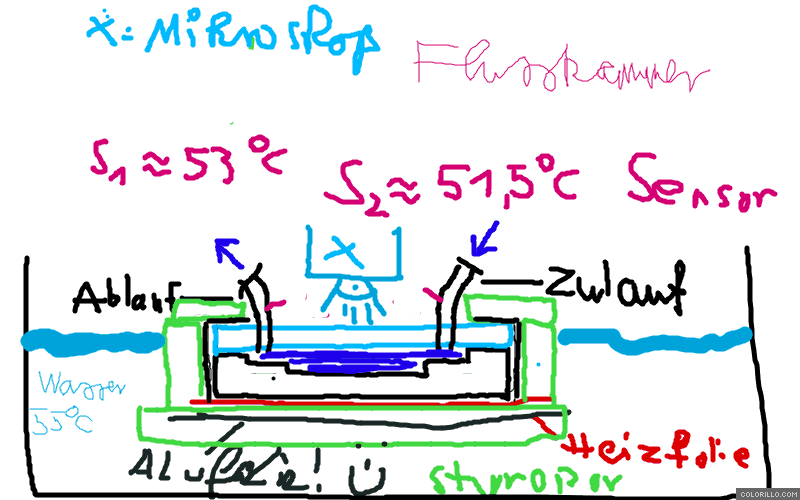 X: Mikroskop
Flusskammer
S1 ≈ 53°C
S2 ≈ 51,5°C Sensor
X
Ablauf
Zulauf
Wasser
55°C
Heizfolie
Alufolie!
Styropor
COLORILLO.COM